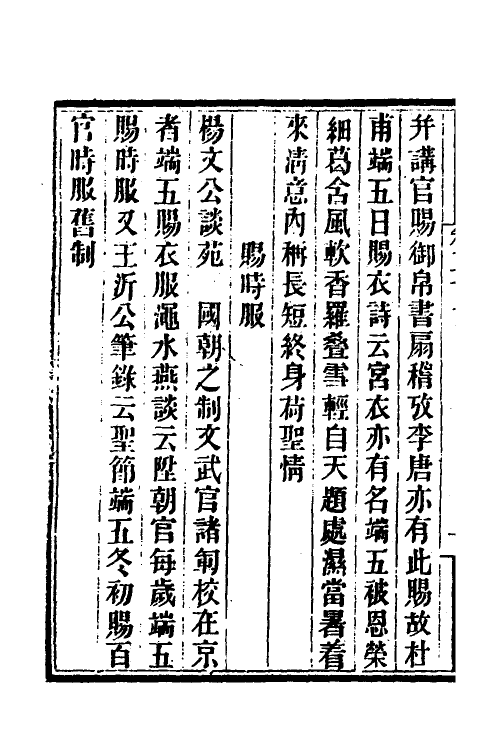 幷講官賜御帛書扇稽攷李唐亦有此賜故杜
甫端五日賜衣詩云宮衣亦有名端五被恩榮
細葛含風軟香羅疊雪輕自天題處濕當暑着
來清意內稱長短終身荷聖情
賜時服
楊文公談苑　國朝之制文武官諸軍校在京
者端五賜衣服澠水燕談云陞朝官每歲端五
賜時服又王沂公筆錄云聖節端五冬初賜百
官時服舊制